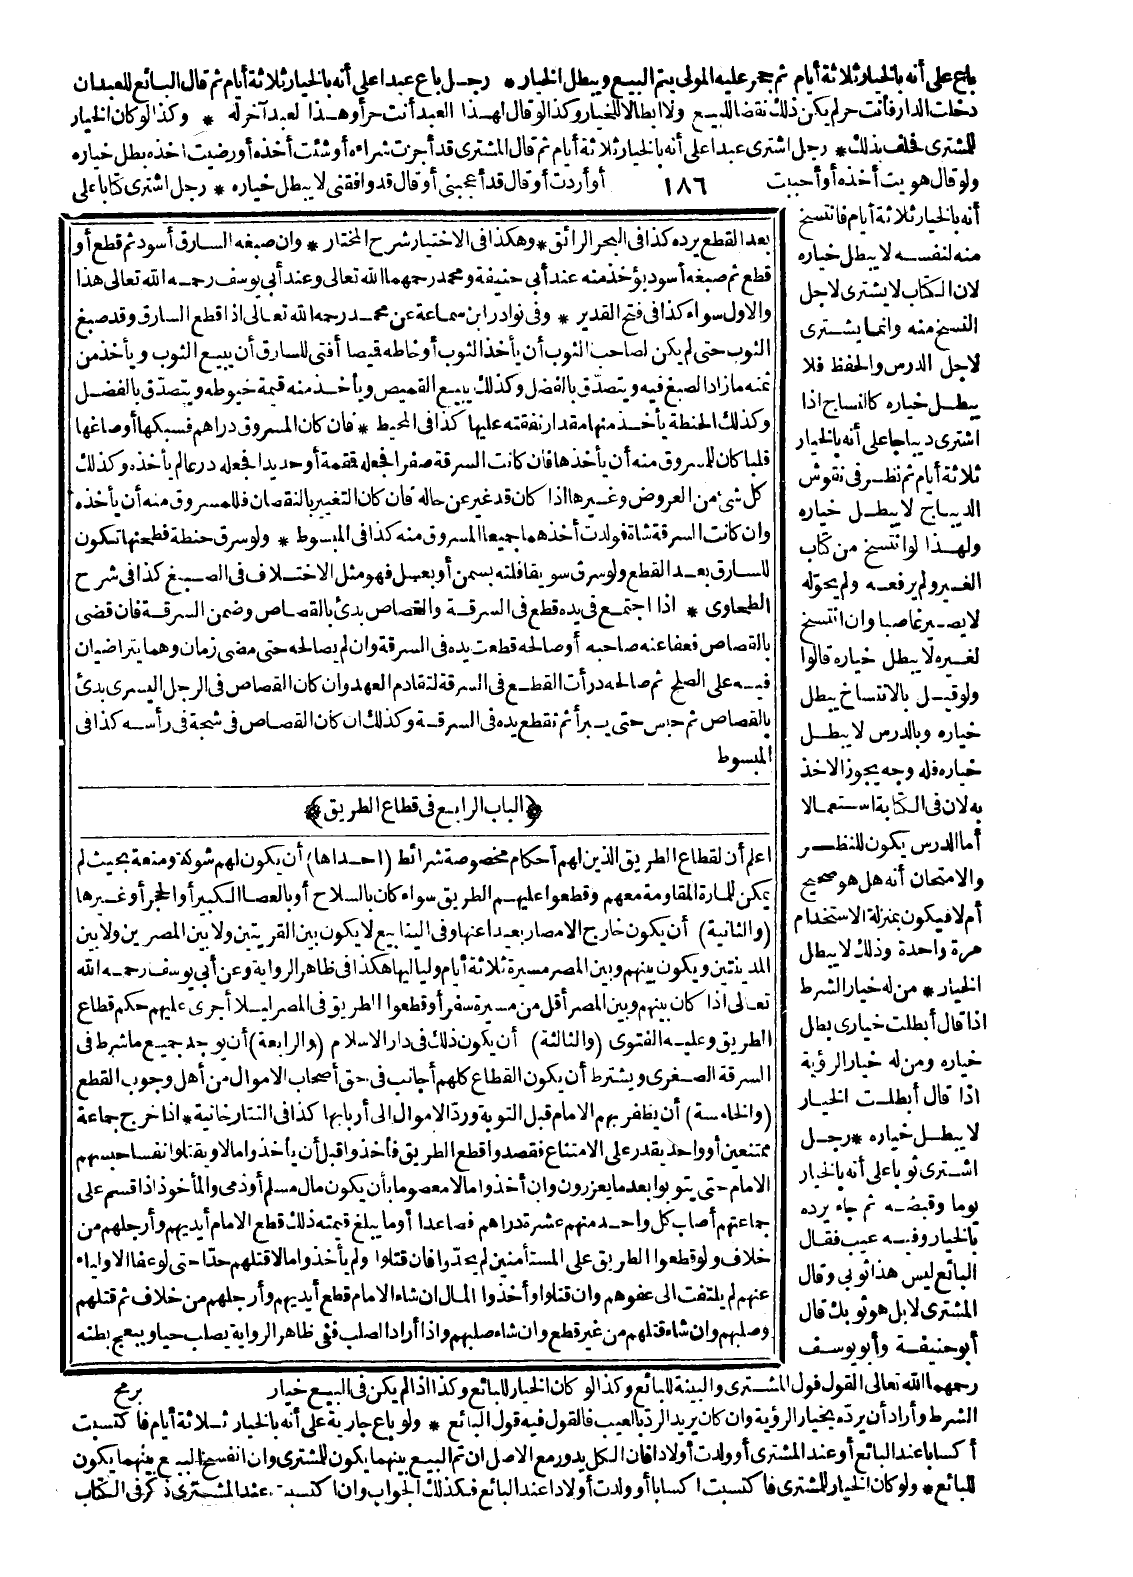 باع على أنه بالخيار ثلاثة أيام ثم حجر عليه المولى يتم البيع ويبطل الخيار * رجل باع عبدا على أنه بالخيار ثلاثة أيام ثم قال البائع للعبد ان
دخلت الدار فأنت حر لم يكن ذلك نقضا للبيع ولا ابطالا للخيار وكذا لو قال لهذا العبد أنت حر أو هذا لعبد آخر له * وكذا لو كان الخيار
للمشترى فحلف بذلك * رجل اشترى عبدا على أنه بالخيار ثلاثة أيام ثم قال المشترى قد أجزت شراءه أو شئت أخذه أو رضيت أخذه بطل خياره
ولو قال هويت أخذه أو أحببت أو أردت أو قال قد أعجبنى أو قال قد وافقنى لا يبطل خياره * رجل اشترى كتابا على
١٨٦
أنه بالخيار ثلاثة أيام فانتسخ
منه لنفسه لا يبطل خياره
لان الكتاب لا يشترى لاجل
النسخ منه وانما يشترى
لاجل الدرس والحفظ فلا
يبطل خياره كالنساج اذا
اشترى ديباجا على أنه بالخيار
ثلاثة أيام ثم نظر فى نقوش
الديباج لا يبطل خياره
ولهذا لو انتسخ من كتاب
الغير ولم يرفعه ولم يحوّله
لا يصير غاصبا وان انتسخ
لغيره لا يبطل خياره قالوا
ولو قيل بالانتساخ يبطل
خياره وبالدرس لا يبطل
خياره فله وجه يجوز الاخذ
به لان فى الكتابة استعمالا
أما الدرس يكون للنظر
والامتحان أنه هل هو صحيح
أم لا فيكون بمنزلة الاستخدام
مرة واحدة وذلك لا يبطل
الخيار * من له خيار الشرط
اذا قال أبطلت خيارى بطل
خياره ومن له خيار الرؤية
اذا قال أبطلت الخيار
لا يبطل خياره * رجل
اشترى ثوبا على أنه بالخيار
يوما وقبضه ثم جاء يرده
بالخيار وفيه عيب فقال
البائع ليس هذا ثوبى وقال
المشترى لا بل هو ثوبك قال
أبو حنيفة وأبو يوسف
بعد القطع يرده كذا فى البحر الرائق * وهكذا فى الاختيار شرح المختار * وان صبغه السارق أسود ثم قطع أو
قطع ثم صبغه أسود يؤخذ منه عند أبى حنيفة ومحمد رحمهما الله تعالى وعند أبى يوسف رحمه الله تعالى هذا
والاول سواء كذا فى فتح القدير * وفى نوادر ابن سماعة عن محمد رحمه الله تعالى اذا قطع السارق وقد صبغ
الثوب حتى لم يكن لصاحب الثوب أن يأخذ الثوب أو خاطه قميصا أفتى للسارق أن يبيع الثوب ويأخذ من
ثمنه ما زاد الصبغ فيه ويتصدّق بالفضل وكذلك يبيع القميص ويأخذ منه قيمة خيوطه ويتصدّق بالفضل
وكذلك الحنطة يأخذ منها مقدار نفقته عليها كذا فى المحيط * فان كان المسروق دراهم فسبكها أو صاغها
قلبا كان للمسروق منه أن يأخذها فان كانت السرقة صفرا فجعله قمقمة أو حديدا فجعله درعا لم يأخذه وكذلك
كل شئ من العروض وغيرها اذا كان قد غير عن حاله فان كان التغيير بالنقصان فللمسروق منه أن يأخذه
وان كانت السرقة شاة فولدت أخذهما جميعا المسروق منه كذا فى المبسوط * ولو سرق حنطة فطحنها تكون
للسارق بعد القطع ولو سرق سويقا فلته بسمن أو بعسل فهو مثل الاختلاف فى الصبغ كذا فى شرح
الطحاوى * اذا اجتمع فى يده قطع فى السرقة والقصاص بدئ بالقصاص وضمن السرقة فان قضى
بالقصاص فعفا عنه صاحبه أو صالحه قطعت يده فى السرقة وان لم يصالحه حتى مضى زمان وهما يتراضيان
فيه على الصلح ثم صالحه درأت القطع فى السرقة لتقادم العهد وان كان القصاص فى الرجل اليسرى بدئ
بالقصاص ثم حبس حتى يبرأ ثم تقطع يده فى السرقة وكذلك ان كان القصاص فى شجة فى رأسه كذا فى
المبسوط
﴿الباب الرابع فى قطاع الطريق﴾
اعلم أن لقطاع الطريق الذين لهم أحكام مخصوصة شرائط (احداها) أن يكون لهم شوكة ومنعة بحيث لم
يمكن للمارة المقاومة معهم وقطعوا عليهم الطريق سواء كان بالسلاح أو بالعصا الكبير أو الحجر أو غيرها
(والثانية) أن يكون خارج الامصار بعيدا عنها وفى الينابيع لا يكون بين القريتين ولا بين المصرين ولا بين
المدينتين ويكون بينهم وبين المصر مسيرة ثلاثة أيام ولياليها هكذا فى ظاهر الرواية وعن أبى يوسف رحمه الله
تعالى اذا كان بينهم وبين المصر أقل من مسيرة سفر أو قطعوا الطريق فى المصر ليلا أجرى عليهم حكم قطاع
الطريق وعليه الفتوى (والثالثة) أن يكون ذلك فى دار الاسلام (والرابعة) أن يوجد جميع ما شرط فى
السرقة الصغرى ويشترط أن يكون القطاع كلهم أجانب فى حق أصحاب الاموال من أهل وجوب القطع
(والخامسة) أن يظفر بهم الامام قبل التوبة وردّ الاموال الى أربابها كذا فى التتارخانية * اذا خرج جماعة
ممتنعين أو واحد يقدر على الامتناع فقصدوا قطع الطريق فأخذوا قبل أن يأخذوا مالا ويقتلوا نفسا حبسهم
الامام حتى يتوبوا بعد ما يعزرون وان أخذوا مالا معصوما بأن يكون مال مسلم أو ذمى والمأخوذ اذا قسم على
جماعتهم أصاب كل واحد منهم عشرة دراهم فصاعدا أو ما يبلغ قيمته ذلك قطع الامام أيديهم وأرجلهم من
خلاف ولو قطعوا الطريق على المستأمنين لم يحدّوا فان قتلوا ولم يأخذوا مالا قتلهم حدّا حتى لو عفا الاولياء
عنهم لم يلتفت الى عفوهم وان قتلوا وأخذوا المال ان شاء الامام قطع أيديهم وأرجلهم من خلاف ثم قتلهم
وصلبهم وان شاء قتلهم من غير قطع وان شاء صلبهم واذا أراد الصلب ففى ظاهر الرواية يصلب حيا ويبعج بطنه
برمح
رحمهما الله تعالى القول قول المشترى والبينة للبائع وكذا لو كان الخيار للبائع وكذا اذا لم يكن فى البيع خيار
الشرط وأراد أن يردّه بخيار الرؤية وان كان يريد الرد بالعيب فالقول فيه قول البائع * ولو باع جارية على أنه بالخيار ثلاثة أيام فاكتسبت
أكسابا عند البائع أو عند المشترى أو ولدت أولادا فان الكل يدور مع الاصل ان تم البيع بينهما يكون للمشترى وان انفسخ البيع بينهما يكون
للبائع * ولو كان الخيار للمشترى فاكتسبت أكسابا أو ولدت أولادا عند البائع فكذلك الجواب وان اكتسبت عند المشترى ذكر فى الكتاب